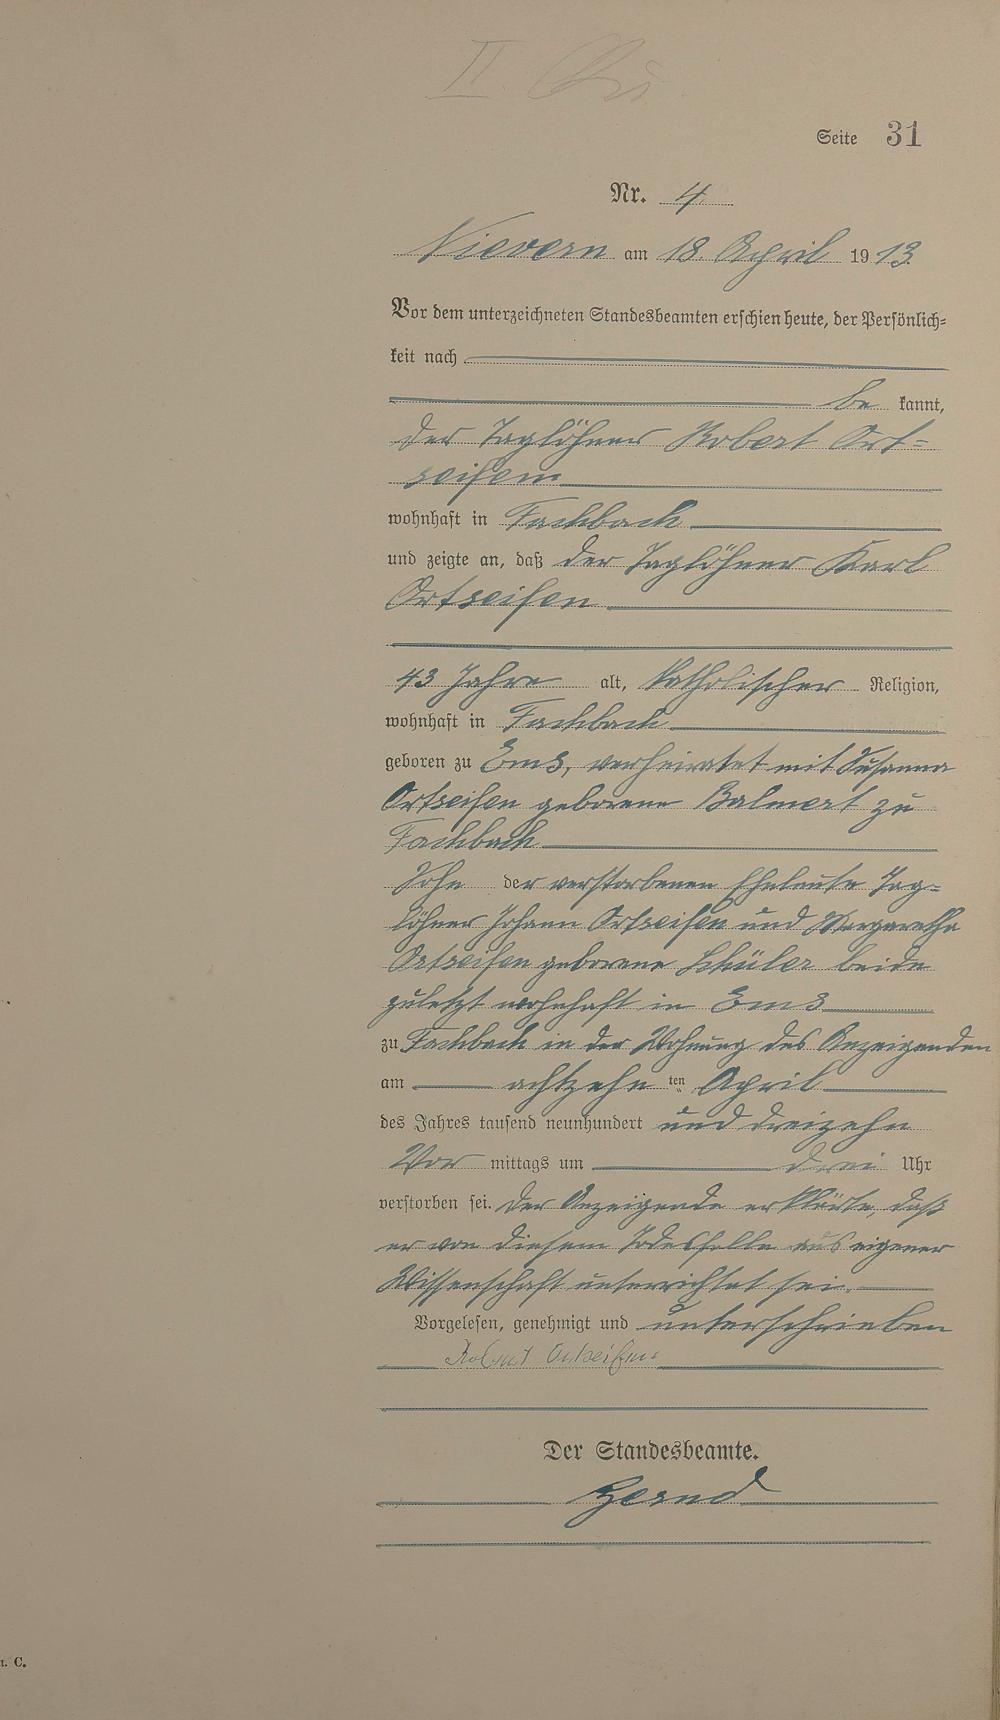 II.
Seite 31
Nr. 4
Nievern am 18. April 1913.
Vor dem unterzeichneten Standesbeamten erschien heute, der Persönlich-
keit nach
be kannt,
der Taglöhner Robert Ort=
seifen
wohnhaft in Fachbach
und zeigte an, daß der Taglöhner Karl
Ortseifen
43 Jahre alt, katholischer Religion,
wohnhaft in Fachbach
geboren zu Ems, verheiratet mit Susanna
Ortseifen geborene Balmert zu
Fachbach
Sohn der verstorbenen Eheleute Tag=
löhner Johann Ortseifen und Margaretha
Ortseifen geborene Schüler beide
zuletzt wohnhaft in Ems
zu Fachbach in der Wohnung des Anzeigenden
am achtzehn ten April
des Jahres tausend neunhundert und dreizehn
Vor mittags um drei Uhr
verstorben sei. Der Anzeigende erklärte, daß
er von diesem Todesfalle aus eigener
Wissenschaft unterrichtet sei.
Vorgelesen, genehmigt und unterschrieben
Robert Ortseifen
Der Standesbeamte.
C.